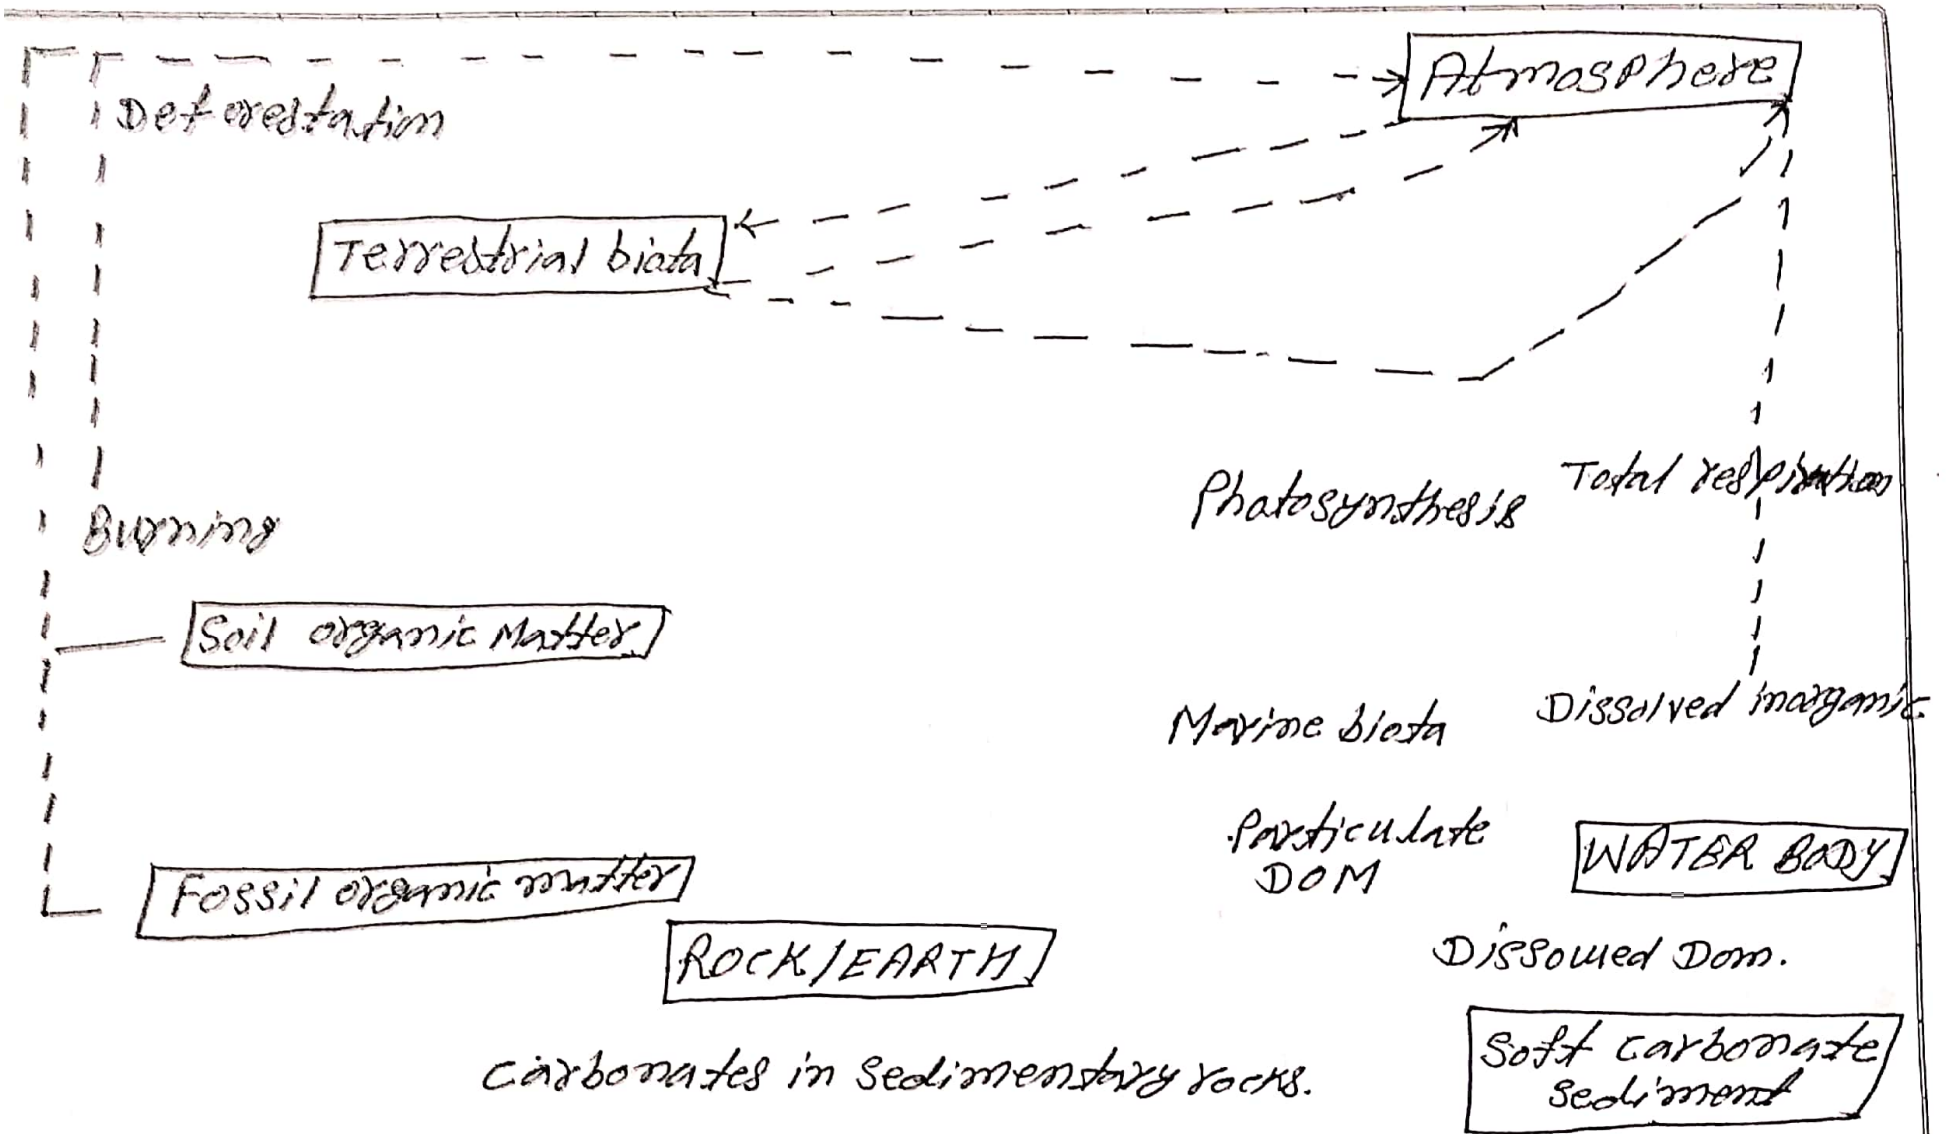 Atmosphere
Deforestation
Terrestrial biota
Photosynthesis
Total respiration
Burning
Soil organic Matter
Marine biota
Dissolved inorganic
Particulate
DOM
WATER BODY
Fossil organic matter
ROCK/EARTH
Dissolved Dom.
Soft carbonate
sediment
Carbonates in sedimentary rocks.